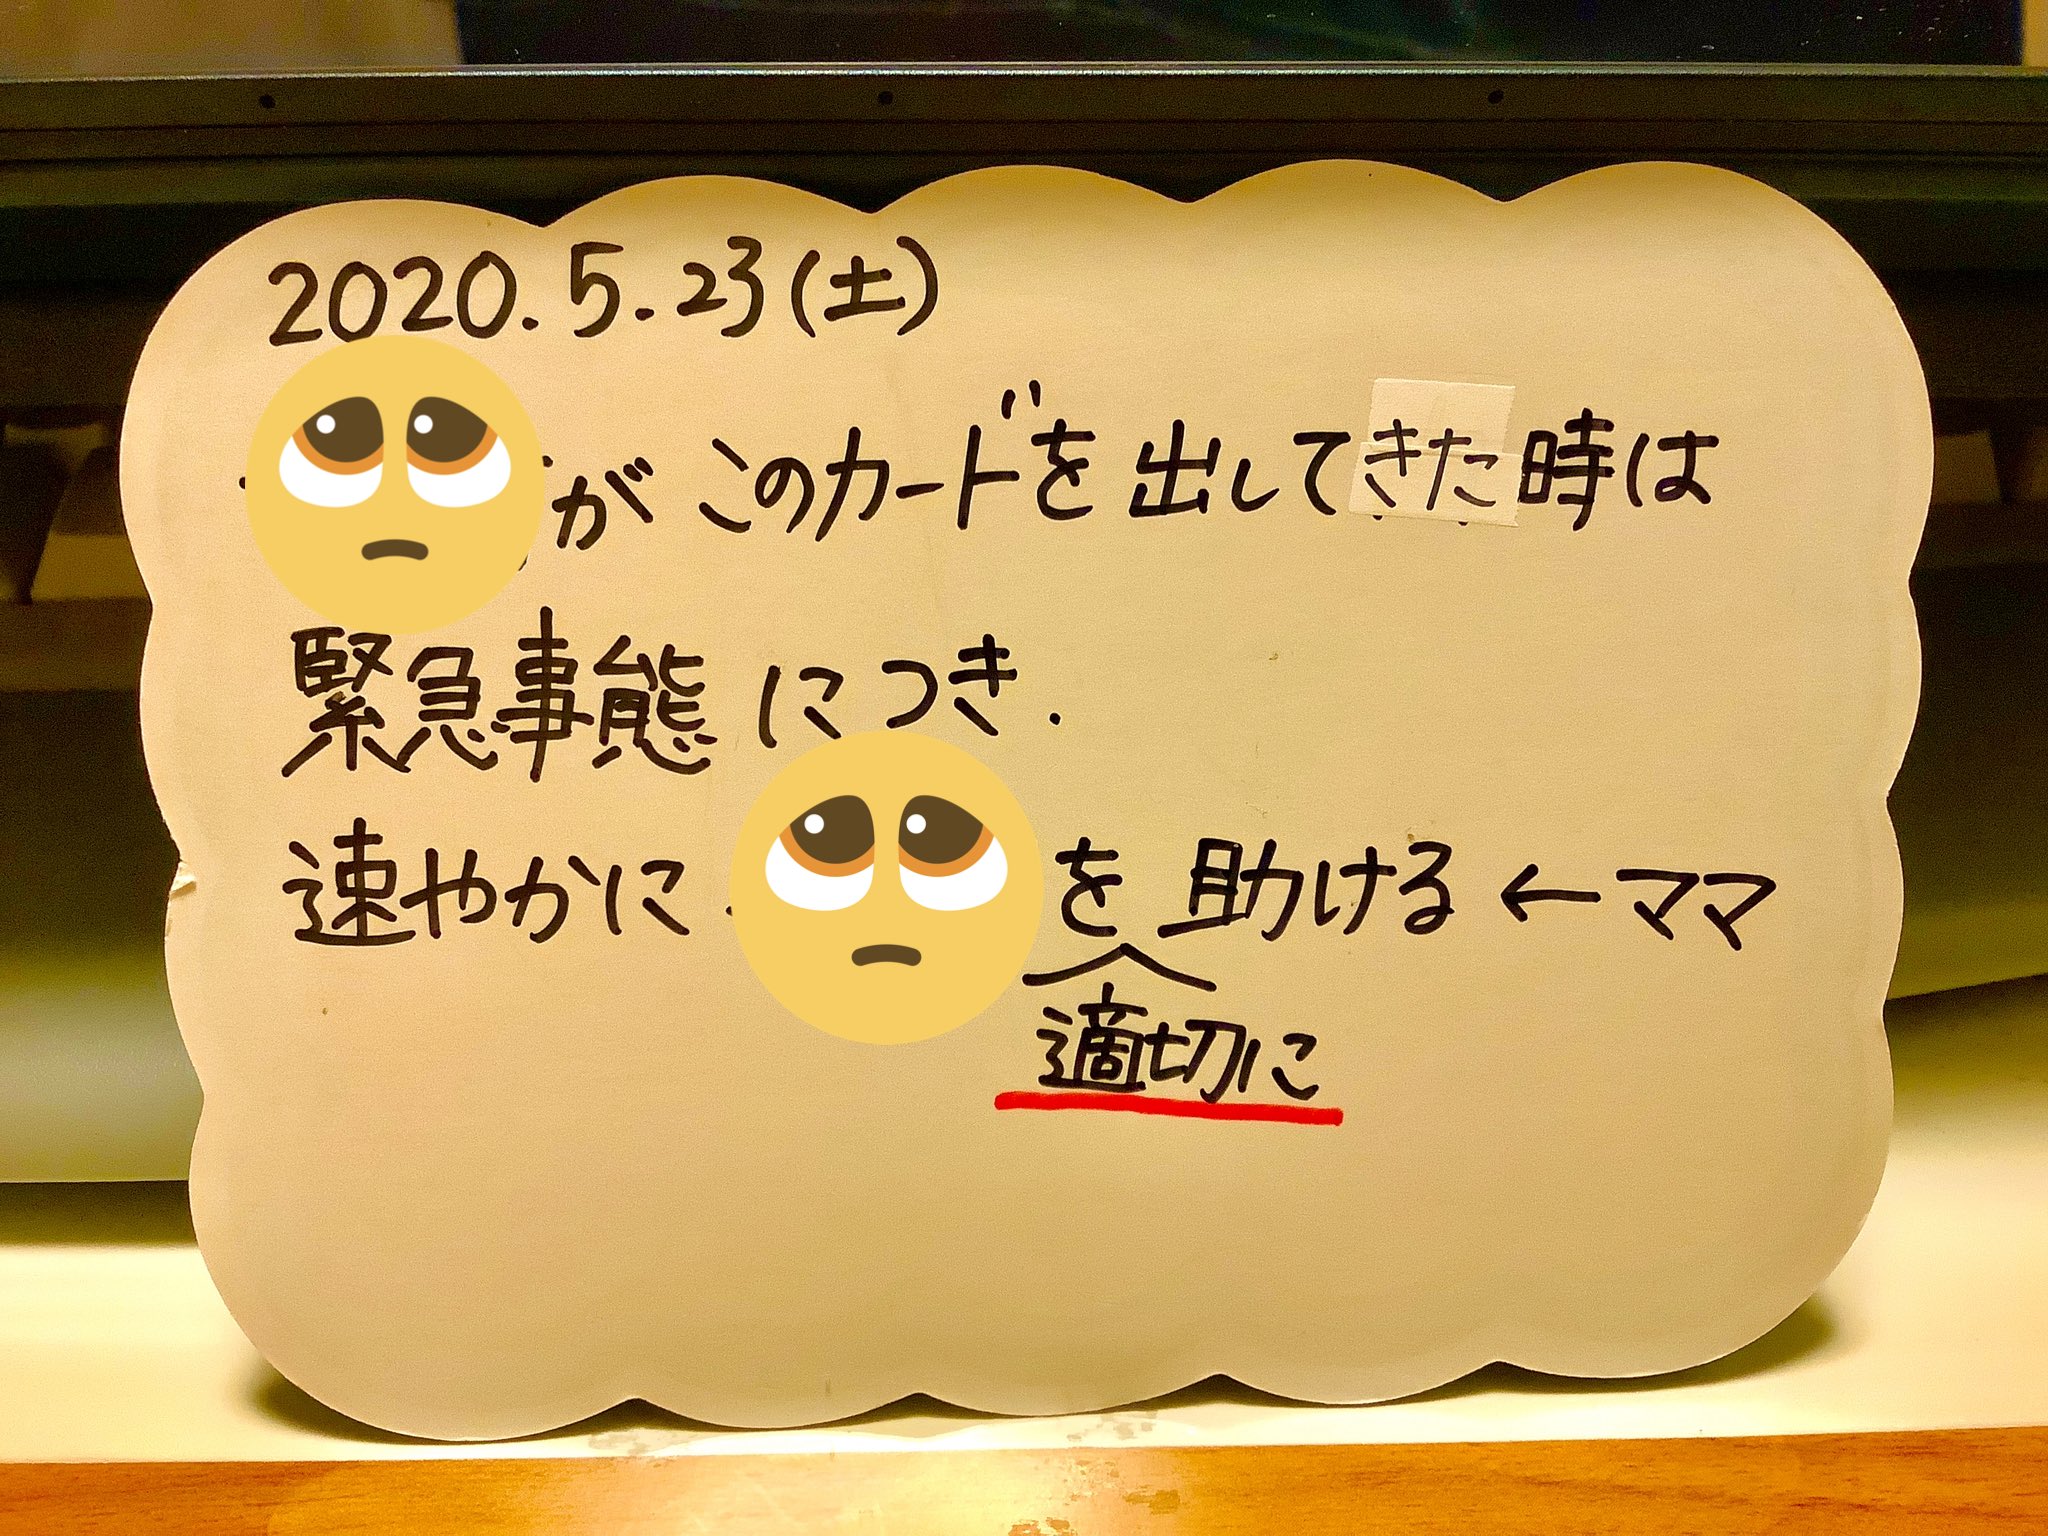 2020.5.23(土)
がこのカードを出してきた時は
緊急事態につき.
速やかに を助ける←ママ
適切に